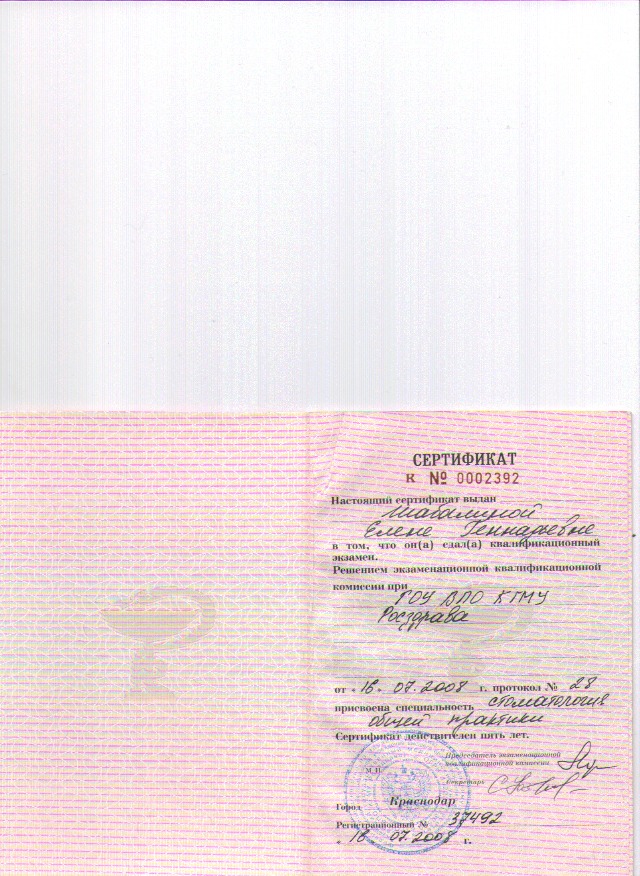 СЕРТИФИКАТ
К № 0002392
Настоящий сертификат выдан
Шабалиной
Елене Геннадьевне
в том, что он(а) сдал(а) квалификационный
экзамен.
Решением экзаменационной квалификационной
комиссии при
ГОУ ВПО КГМУ
Росздрава
от « 16 » 07.2008 г. протокол № 28
присвоена специальность стоматология
общей практики
Сертификат действителен пять лет.
Председатель экзаменационной
квалификационной комиссии
М.П.
Секретарь
Город Краснодар
Регистрационный № 37492
« 16 07.2008 г.